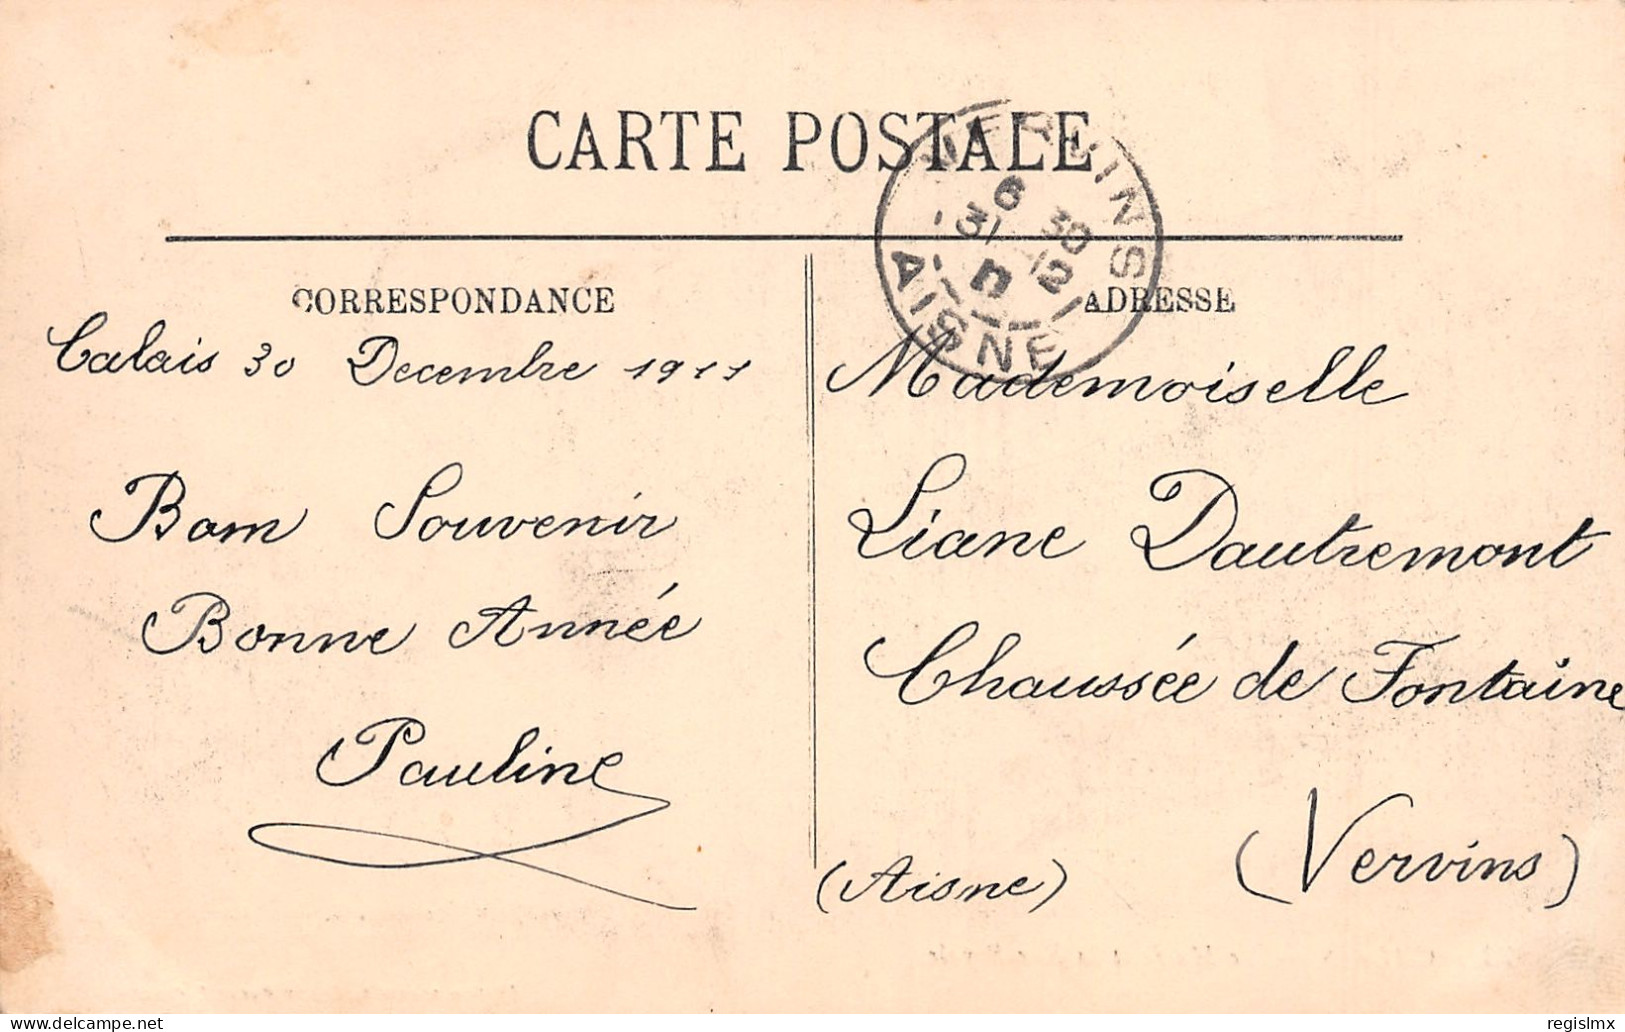 CARTE POSTALE
VERVINS
6 30
31 12
AISNE
CORRESPONDANCE
Calais 30 Decembre 1911
Bom Souvenir
Bonne Année
Pauline
ADRESSE
Mademoiselle
Liane Dautremont
Chaussée de Fontaine
(Vervins)
(Aisne)
delcampe.net
regislmx